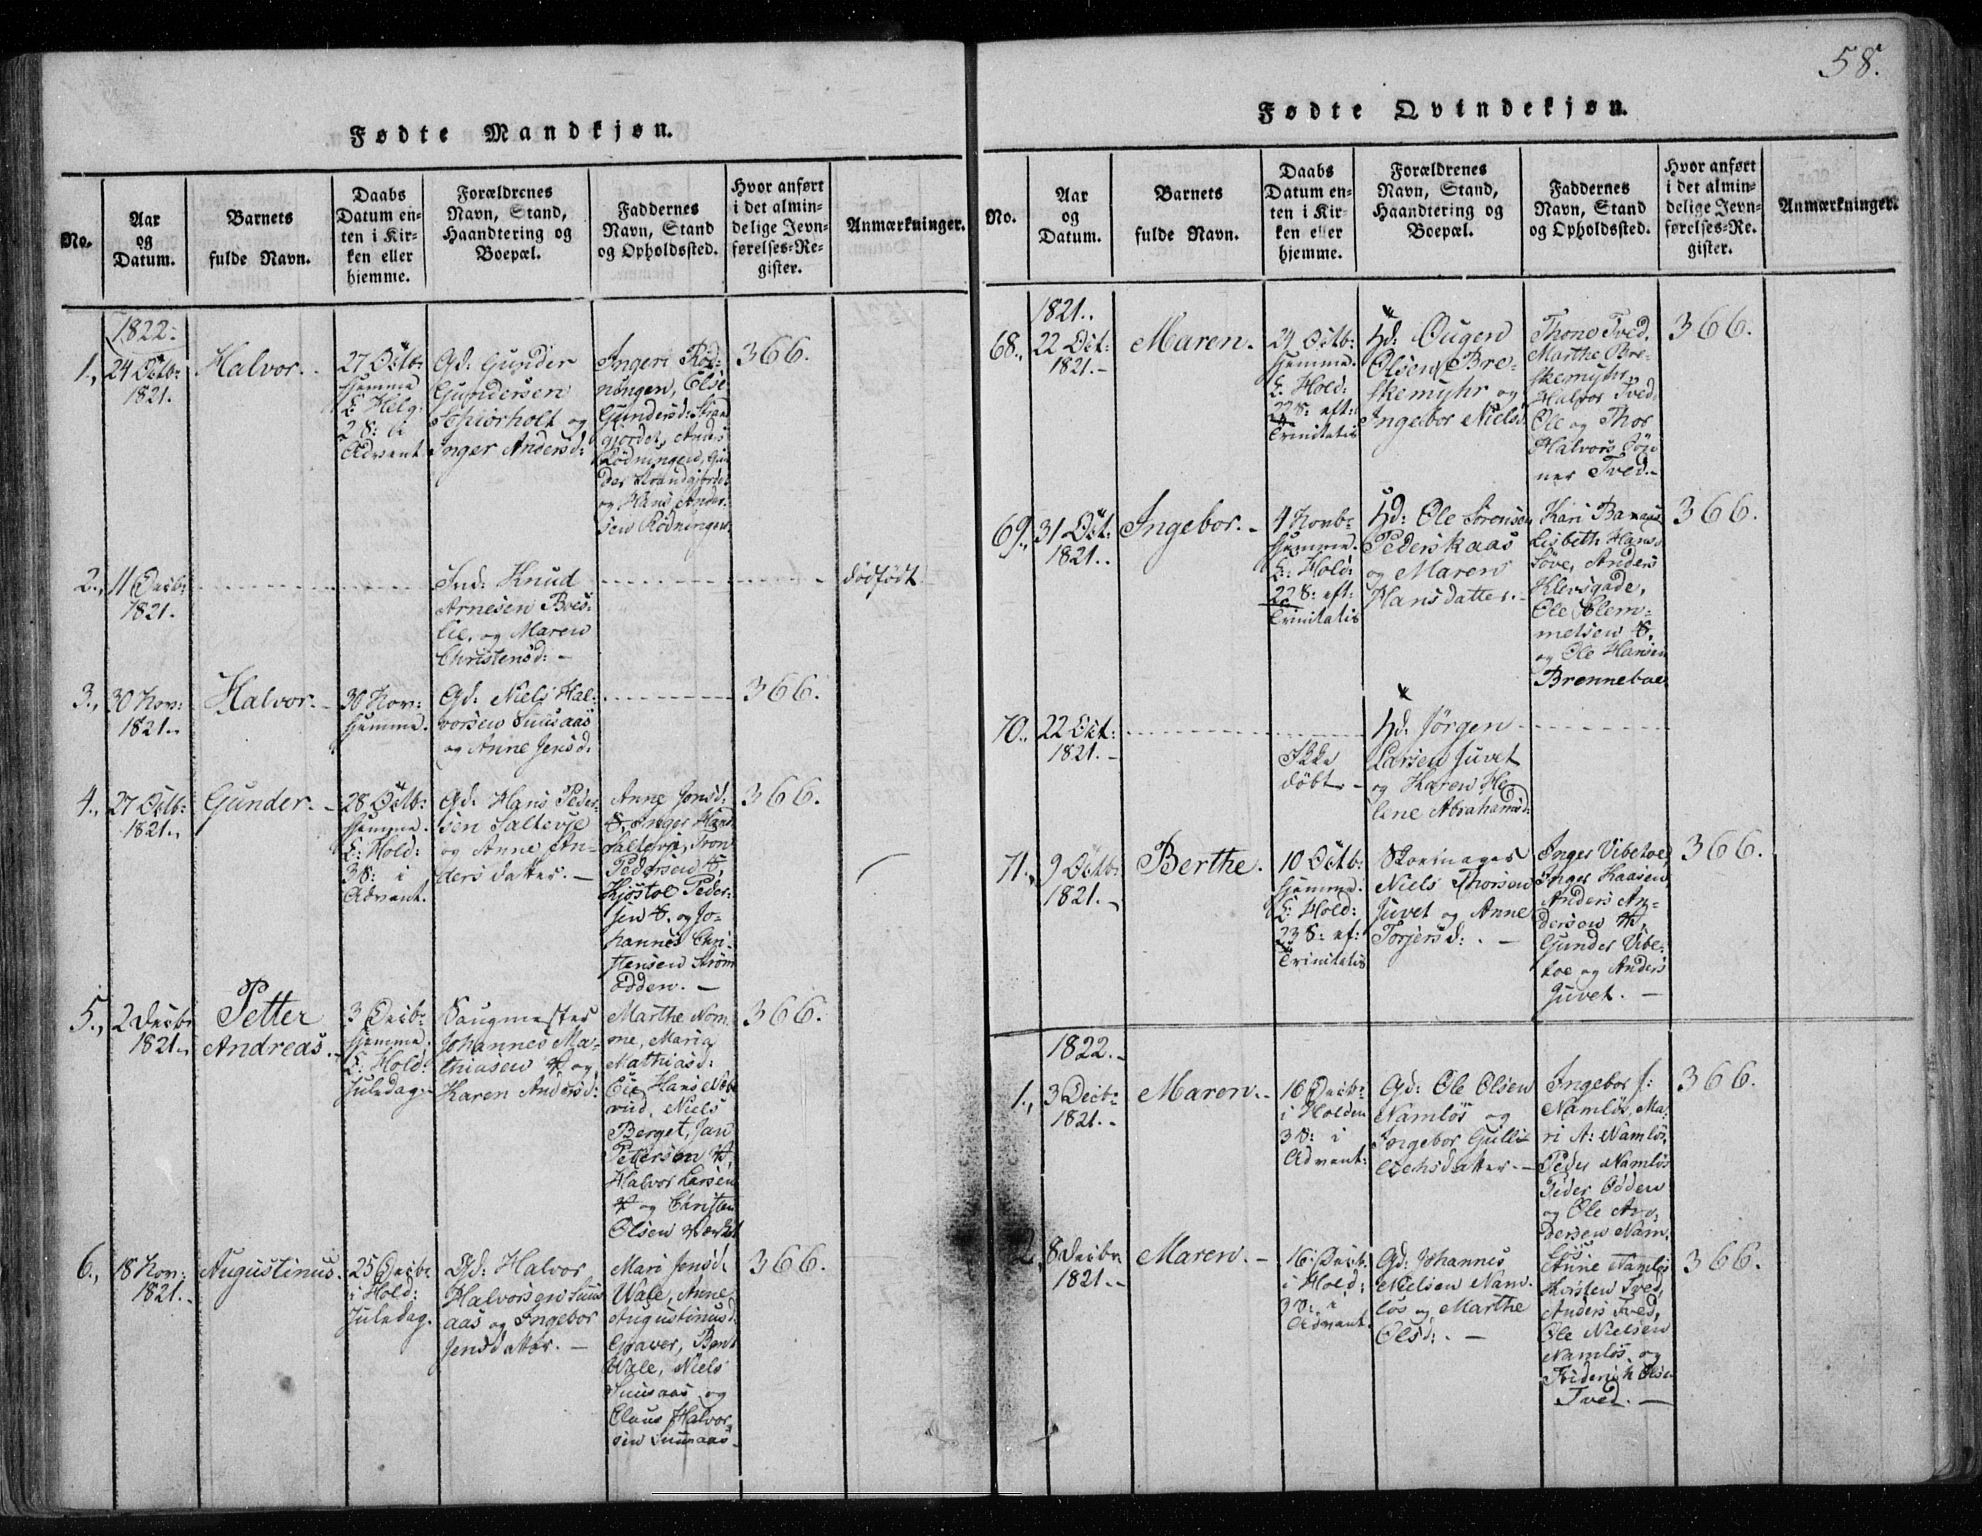 58.
Fødte Mandkjøn.
No.
Aar
og
Datum.
Barnets
fulde Navn.
Daabs
Datum en-
ten i Kir-
ken eller
hjemme.
Forældrenes
Navn, Stand,
Haandtering og
Boepæl.
Faddernes
Navn, Stand
og Opholdssted.
Hvor anført
i det almin-
delige Jevn-
førelses-Re-
gister.
Anmærkninger.
1822.
1.,
24 Octb:
1821.
Halvor.
27 Octb:
hjemme
E: Helg:
2 S: i
Advent
Gd: Gunder
Gundersen
og
Inger Andersd:
Ingeri Röd-
ningen, Else
Gundersd: Strand
gjordet, Anders
Rödningen, Gun
der Strandgjordet
og Hans Ander-
sen Rödningen
366.
2.,
11 Decb:
1821.
Ind: Knud
Arnesen Bres-
lie, og Maren
Christensd: -
dödfödt
3.,
30 Nov:
1821.
Halvor.
30 Nov:
hjemme.
Gd: Niels Hal-
vorsen Suusaas
og Anne Jensd:
366.
4.,
27 Octb:
1821.
Gunder.
28 Octb:
hjemme.
E: Hold:
3 S: i
Advent.
Gd: Hans Peder-
sen Saltevje
og Anne An-
dersdatter. -
Anne Jonsd:
Inger Hans
Saltevje, Tron
Pedersen
Kjöstol Peder-
sen og Jo-
hannes Chri-
stensen Ström
Odden. -
366.
5.,
2 Decb:
1821.
Petter
Andreas.
3 Decb:
hjemme.
E: Hold:
Juledag.
Saugmester
Johannes Ma-
thiasen og
Karen Andersd:
Marthe Nom-
me, Maria
Mathiasd:
Hans
rud, Niels
Berget, Jan
Petersen
Halvor Larsen
og Christen
Olsen Værket
366.
6.,
18 Nov:
1821.
Augustinus.
25 Decb:
i Hold:
Juledag.
Gd: Halvor
Halvorsen Suus
aas og Ingebor
Jensdatter. -
Mari Jensd:
Wale, Anne
Augustinusd:
Graver, Bent
Wale, Niels
Suusaas og
Claus Halvor-
sen Suusaas
366.
Fødte Qvindekjøn.
No.
Aar
og
Datum.
Barnets
fulde Navn.
Daabs
Datum en-
ten i Kir-
ken eller
hjemme.
Forældrenes
Navn, Stand,
Haandtering og
Boepæl.
Faddernes
Navn, Stand
og Opholdssted.
Hvor anført
i det almin-
delige Jevn-
førelses-Re-
gister.
Anmærkninger.
1821.
68.,
22 Oct:
1821.-
Maren.
24 Octb:
hjemme.
E: Hold:
22 S: eft:
Trinitatis
Hd: Ougen
Olsen Bre-
skemyhr og
Ingebor Nielsd:
Thone Tved,
Marthe Bre-
skemyhr,
Halvor Tved,
Ole og Thor
Halvors Sön-
ner Tved.-
366.
69.,
31 Oct:
1821.
Ingebor. -
4 Novb:
hjemme.
E: Hold:
22 S: eft:
Trinitatis
Hd: Ole Sörensen
Pederskaas
og Maren
Hansdatter. -
Kari
Lisbeth Hans
Löve, Anders
Klevsgade,
Ole Clem-
metsen
og Ole Hansen
Brenneboe.
366.
70.,
22 Oct:
1821. -
Ikke
döbt. -
Hd: Jörgen
Larsen Juvet
og Karen He-
lene Abrahamsd:
71.,
9 Octb:
1821. -
Berthe.
10 Octb:
hjemme.
E: Hold:
23 S: ef:
Trinitatis
Skoemager
Niels Thorsen
Juvet og Anne
Torjersd: . -
Inger Vibetoe,
Inger Kaasen,
Anders An-
dersen
Gunder Vibe-
toe og Anders
Juvet. -
366.
1822. -
1.,
3 Decb:
1821. -
Maren. -
16 Decb:
i Holden
3 S: i
Advent:
Gd: Ole Olsen
Namlös og
Ingebor Gulli-
chsdatter. -
Ingebor J:
Namlös, Ma-
ri A: Namlös,
Peder Namlös
Peder Odden
og Ole An-
dersen Nam-
lös
366.
2.,
8 Decbr
1821. -
Maren. -
16 Decb.
i Hold:
3 S: i
Advent.
Gd: Johannes
Nielsen Nam-
lös og Marthe
Olsd: . -
Anne Namlös
Kirsten Tved,
Anders Tved,
Ole Nielsen
Namlös og
Friderich Olsen
Tved. -
366.